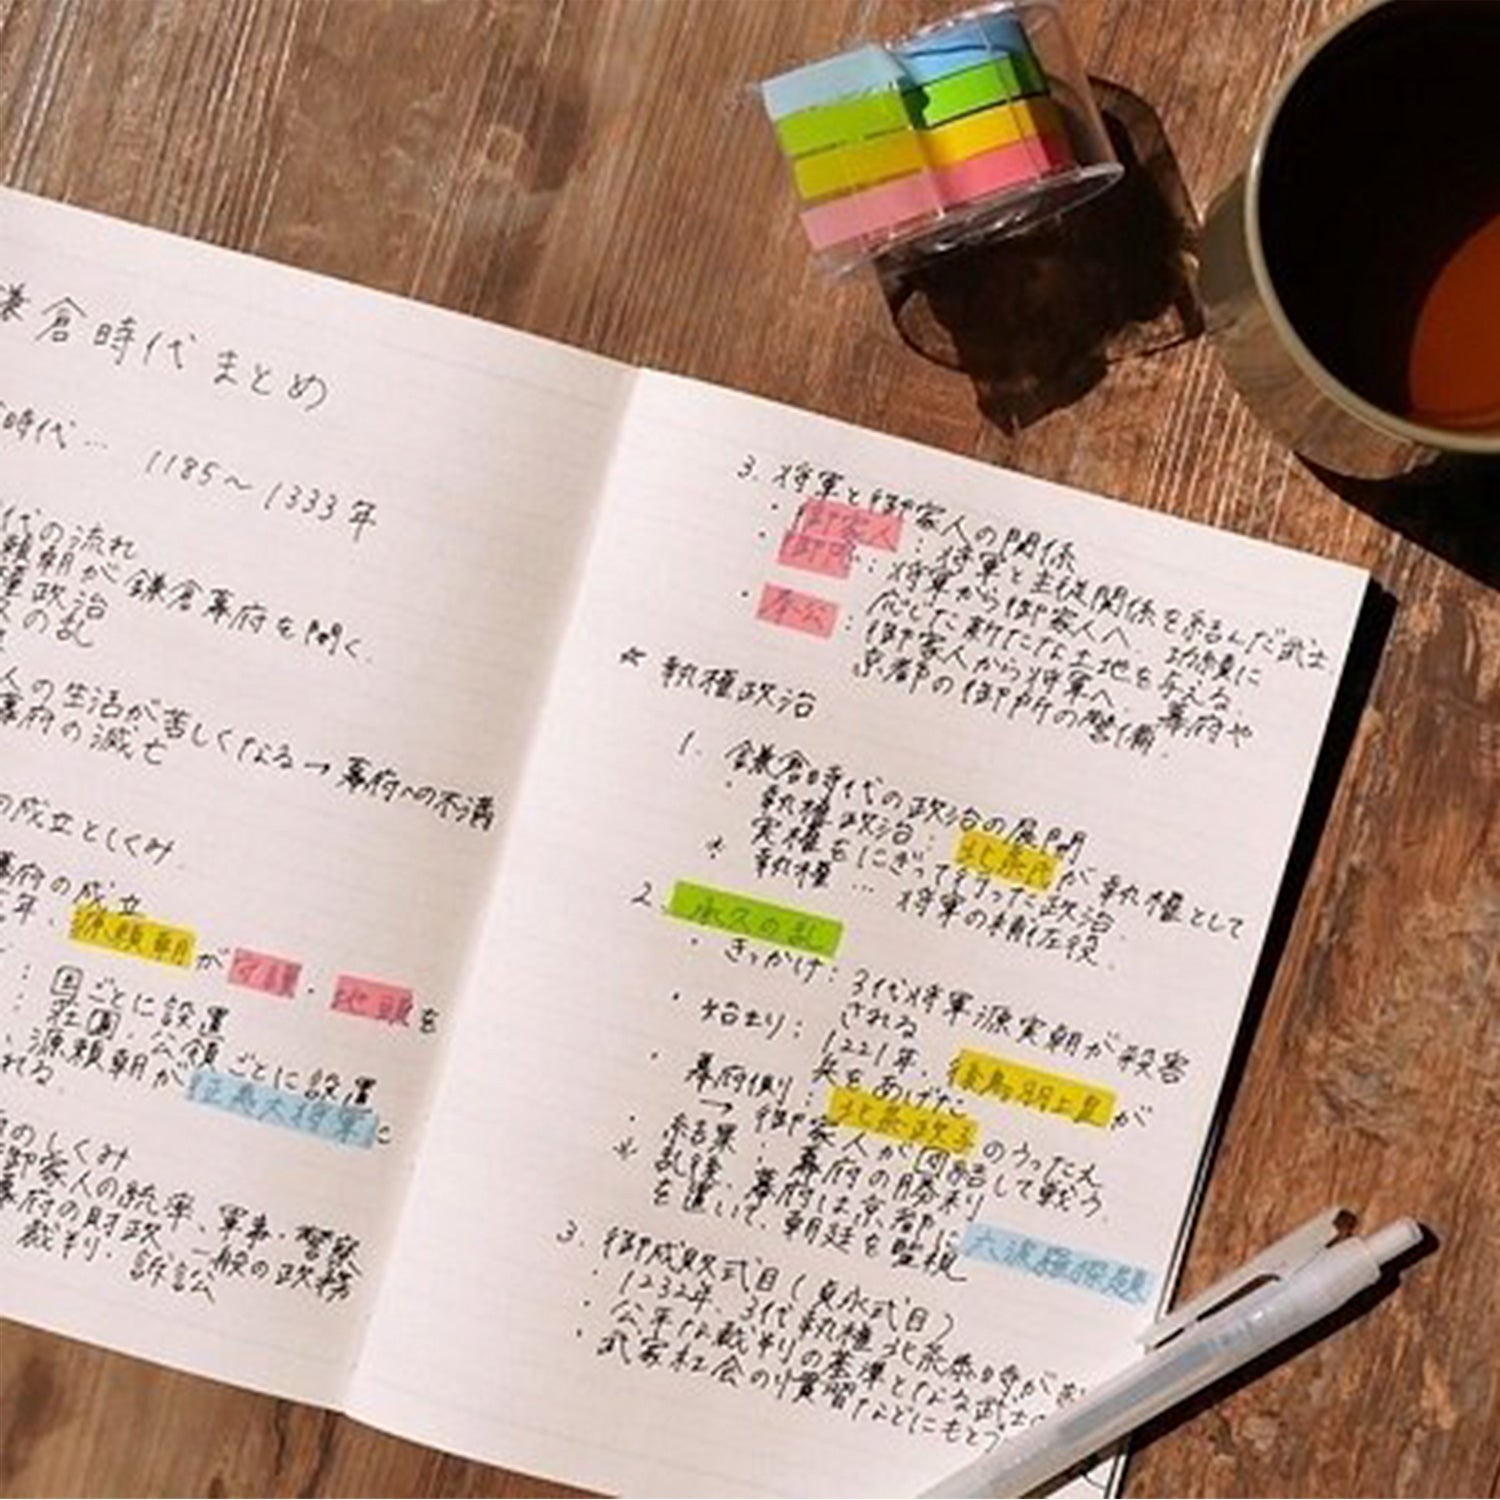 鎌倉時代 まとめ
時代… 1185〜1333年
代の流れ
頼朝が鎌倉幕府を開く.
権政治
の乱
人の生活が苦しくなる→幕府への不満
幕府の滅亡
の成立としくみ.
幕府の成立
年、源頼朝が守護・地頭を
: 国ごとに設置
: 荘園、公領ごとに設置
、源頼朝が征夷大将軍に
れる.
のしくみ
御家人の統率、軍事・警察
幕府の財政、一般の政務
裁判・訴訟
3. 将軍と御家人の関係
・御家人: 将軍と主従関係を結んだ武士
・御恩: 将軍から御家人へ. 功績に
応じた新たな土地を与える
・奉公: 御家人から将軍へ. 幕府や
京都の御所の警備.
☆ 執権政治
1. 鎌倉時代の政治の展開
・執権政治: 北条氏が執権として
実権をにぎって行った政治.
* 執権 … 将軍の補佐役.
2. 承久の乱
・きっかけ: 3代将軍源実朝が殺害
される
・始まり: 1221年、後鳥羽上皇が
兵をあげた
・幕府側: 北条政子のうったえ
→ 御家人が団結して戦う.
・結果: 幕府の勝利
* 乱後、幕府は京都に六波羅探題
を置いて、朝廷を監視
3. 御成敗式目(貞永式目)
・1232年、3代執権北条泰時が
・公平な裁判の基準となる武士
・武家社会の慣習などにもとづ